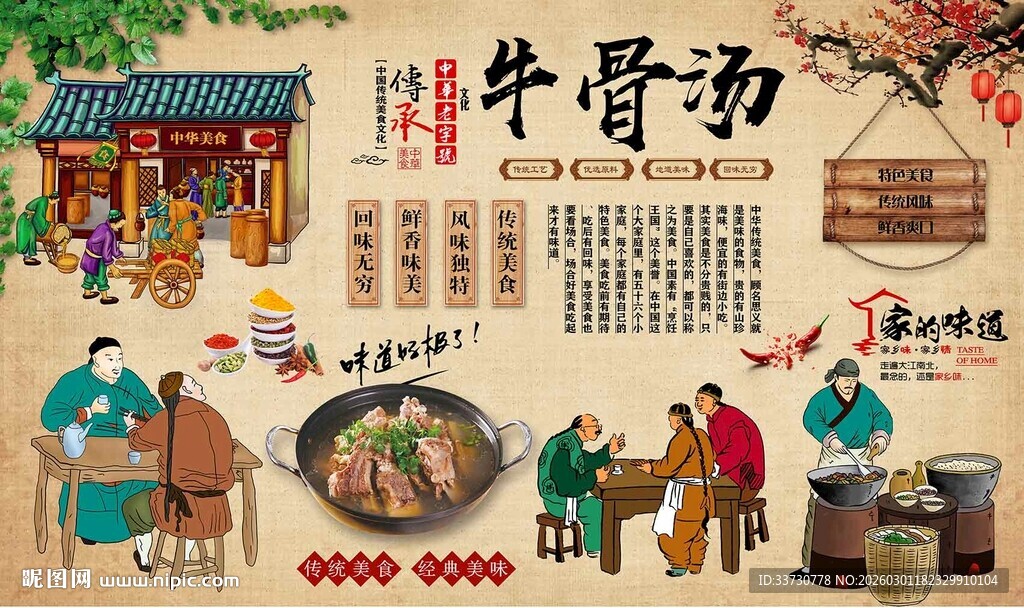 牛骨汤
【中国传统美食文化】
傳承
中華美食
中華老字號
文化
传统工艺
优选原料
地道美味
回味无穷
中华美食
特色美食
传统风味
鲜香爽口
传统美食
风味独特
鲜香味美
回味无穷
中华传统美食，顾名思义就
是美味的食物，贵的有山珍
海味，便宜的有街边小吃。
其实美食是不分贵贱的，只
要是自己喜欢的，都可以称
之为美食。中国素有“烹饪
王国”这个美誉。在中国这
个大家庭里，有五十六个小
家庭，每个家庭都有自己的
特色美食。美食吃前有期待
、吃后有回味，享受美食也
要看场合，场合好美食吃起
来才有味道。
味道好极了！
家的味道
家乡味·家乡情
TASTE
OF HOME
走遍大江南北，
最念的，还是家乡味...
传统美食 经典美味
昵图网 www.nipic.com
ID:33730778 NO:20260301182329910104